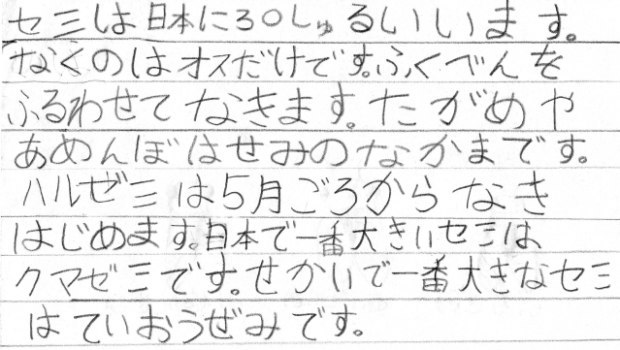 セミは日本に30しゅるいいます。
なくのはオスだけです。ふくべんを
ふるわせてなきます。たがめや
あめんぼはせみのなかまです。
ハルゼミは5月ごろからなき
はじめます。日本で一番大きいセミは
クマゼミです。せかいで一番大きなセミ
はていおうぜみです。